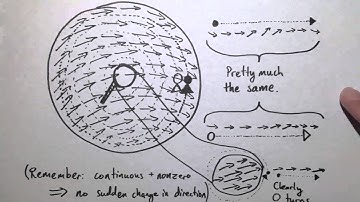 Pretty much
the same.
(Remember: continuous + nonzero
⇒ no sudden change in direction)
Clearly
0 turns